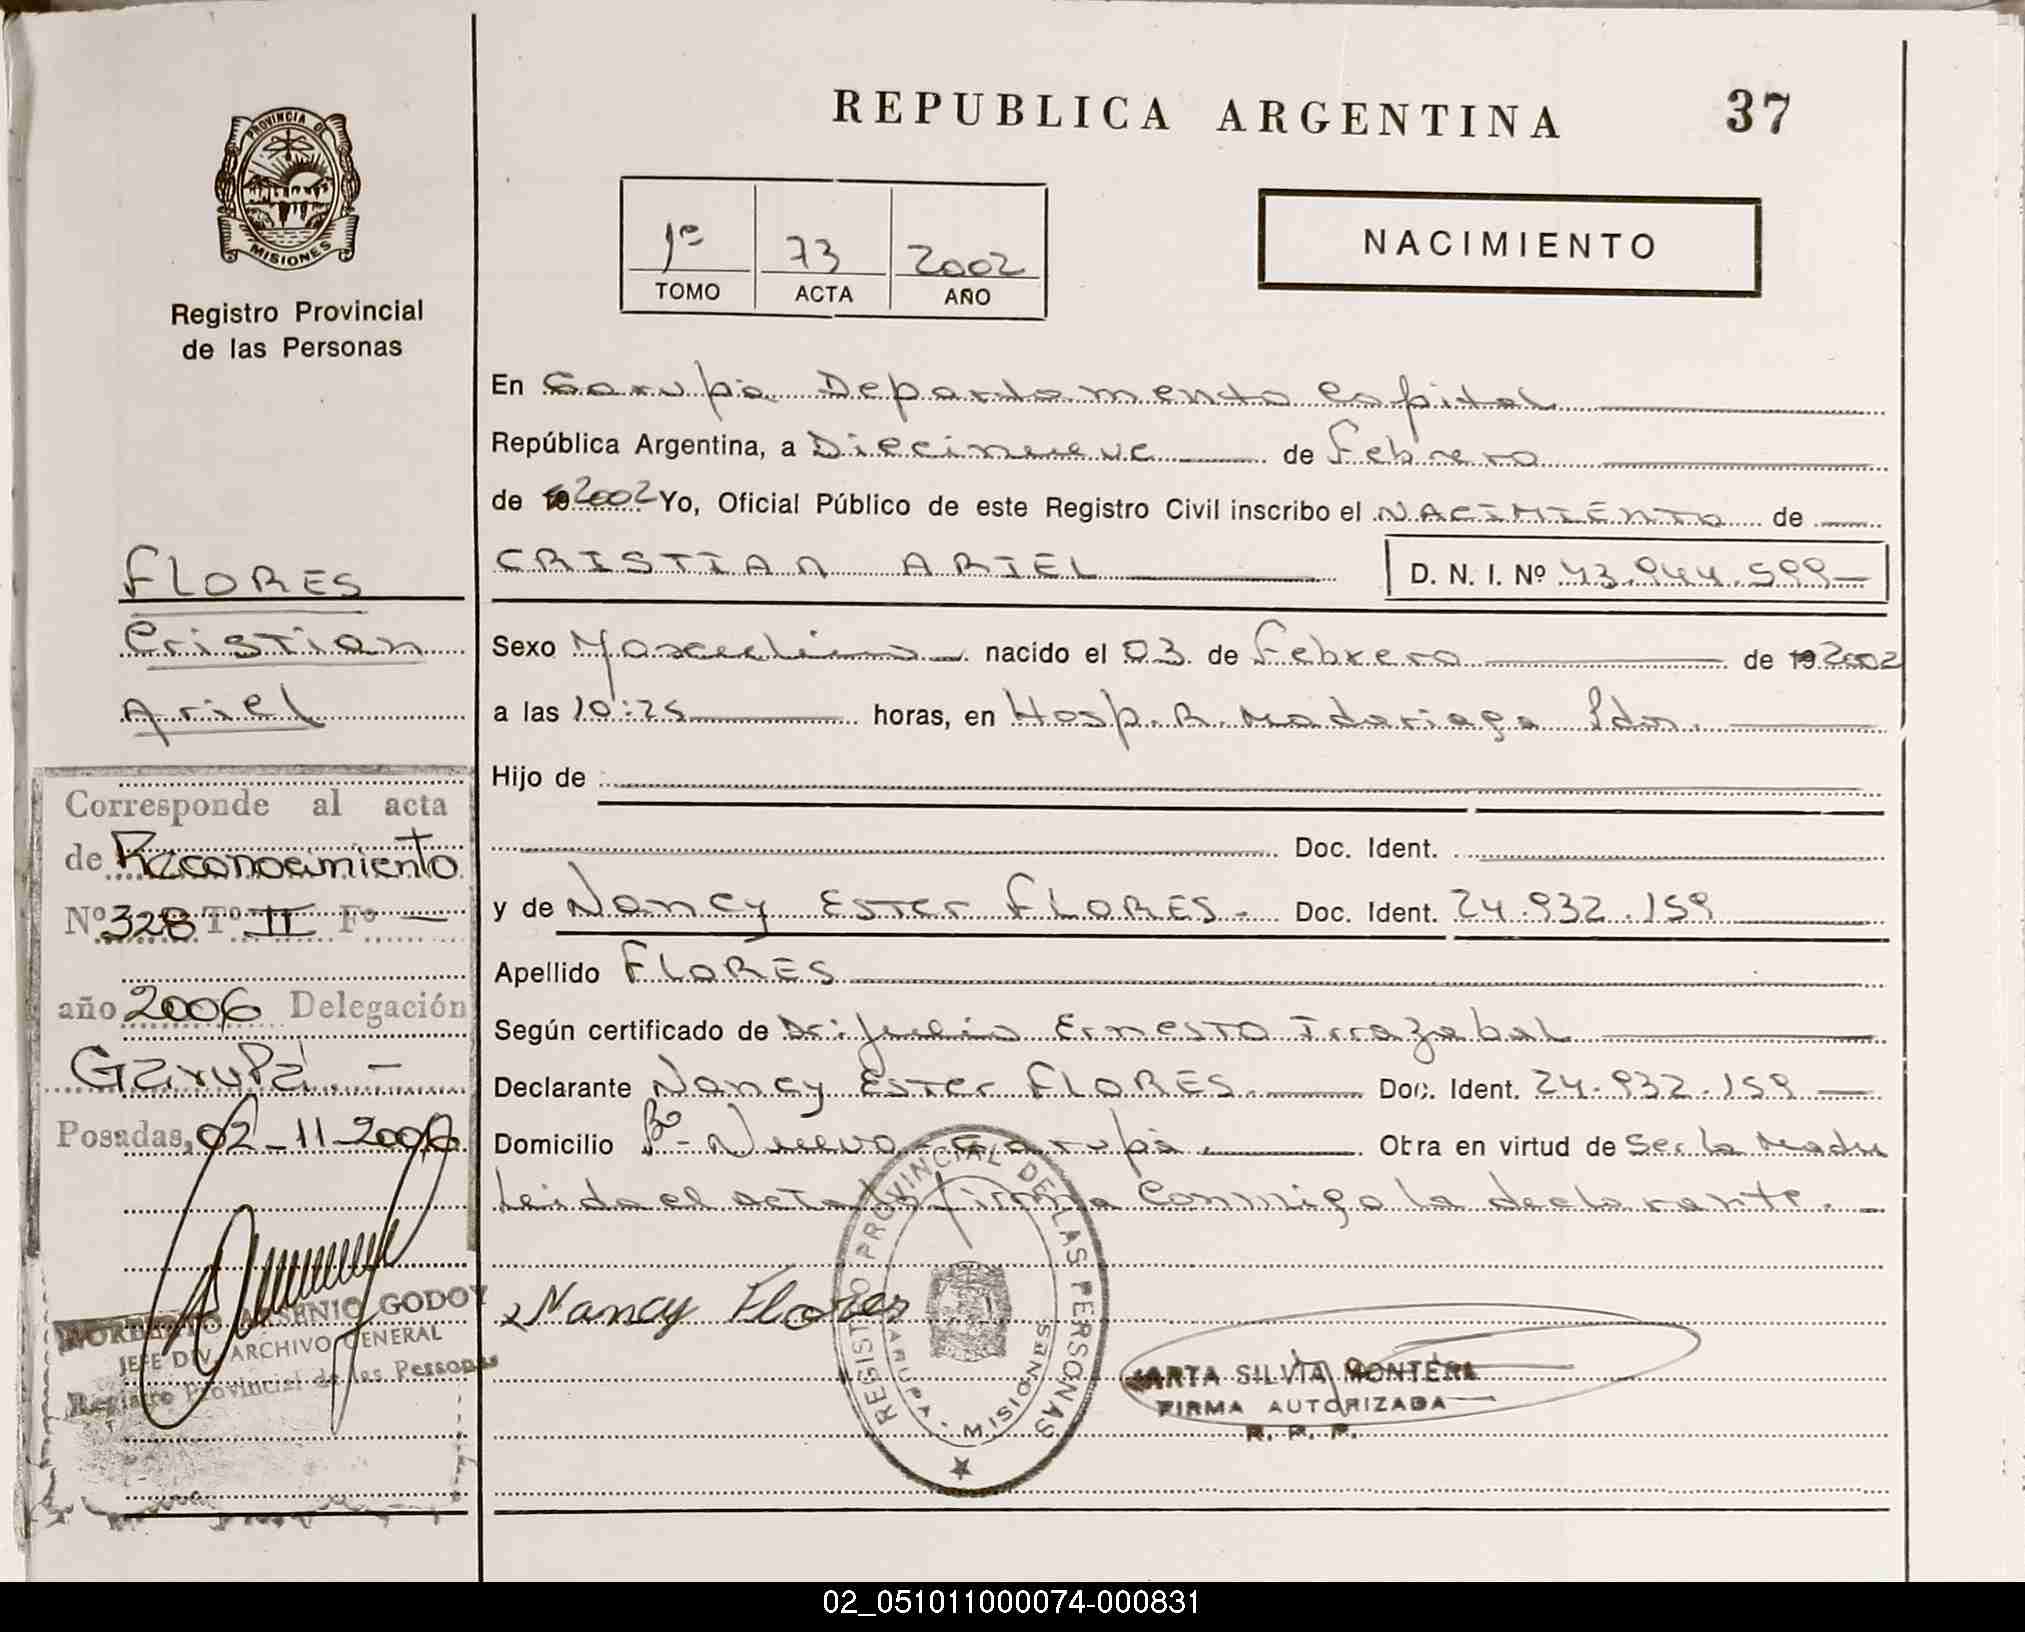 REPUBLICA ARGENTINA
37
PROVINCIA DE
MISIONES
Registro Provincial
de las Personas
1º 73 2002
TOMO ACTA AÑO
NACIMIENTO
En Garupá Departamento Capital
República Argentina, a Diecinueve de Febrero
de 2002 Yo, Oficial Público de este Registro Civil inscribo el NACIMIENTO de
CRISTIAN ARIEL D. N. I. Nº 43.944.599
Sexo Masculino nacido el 03 de Febrero de 2002
a las 10:25 horas, en Hosp. R. Madariaga Pdas.
Hijo de
Doc. Ident.
y de Nancy Ester FLORES.- Doc. Ident. 24.932.159
Apellido FLORES
Según certificado de Dr. Julio Ernesto Irrazabal
Declarante Nancy Ester FLORES. Doc. Ident. 24.932.159
Domicilio Bº- Nuevo-Garupá. Obra en virtud de Ser la Madre
Leida el acta la firma conmigo la declarante.
Nancy Flores
REGISTRO PROVINCIAL DE LAS PERSONAS
GARUPA - MISIONES
MARTA SILVIA MONTERA
FIRMA AUTORIZADA
R. P. P.
FLORES
Cristian
Ariel
Corresponde al acta
de Reconocimiento
Nº 328 Tº II Fº —
año 2006 Delegación
Garupá. -
Posadas, 02-11-2006
NORBERTO ARSENIO GODOY
JEFE DIV. ARCHIVO GENERAL
Registro Provincial de las Personas
02_051011000074-000831